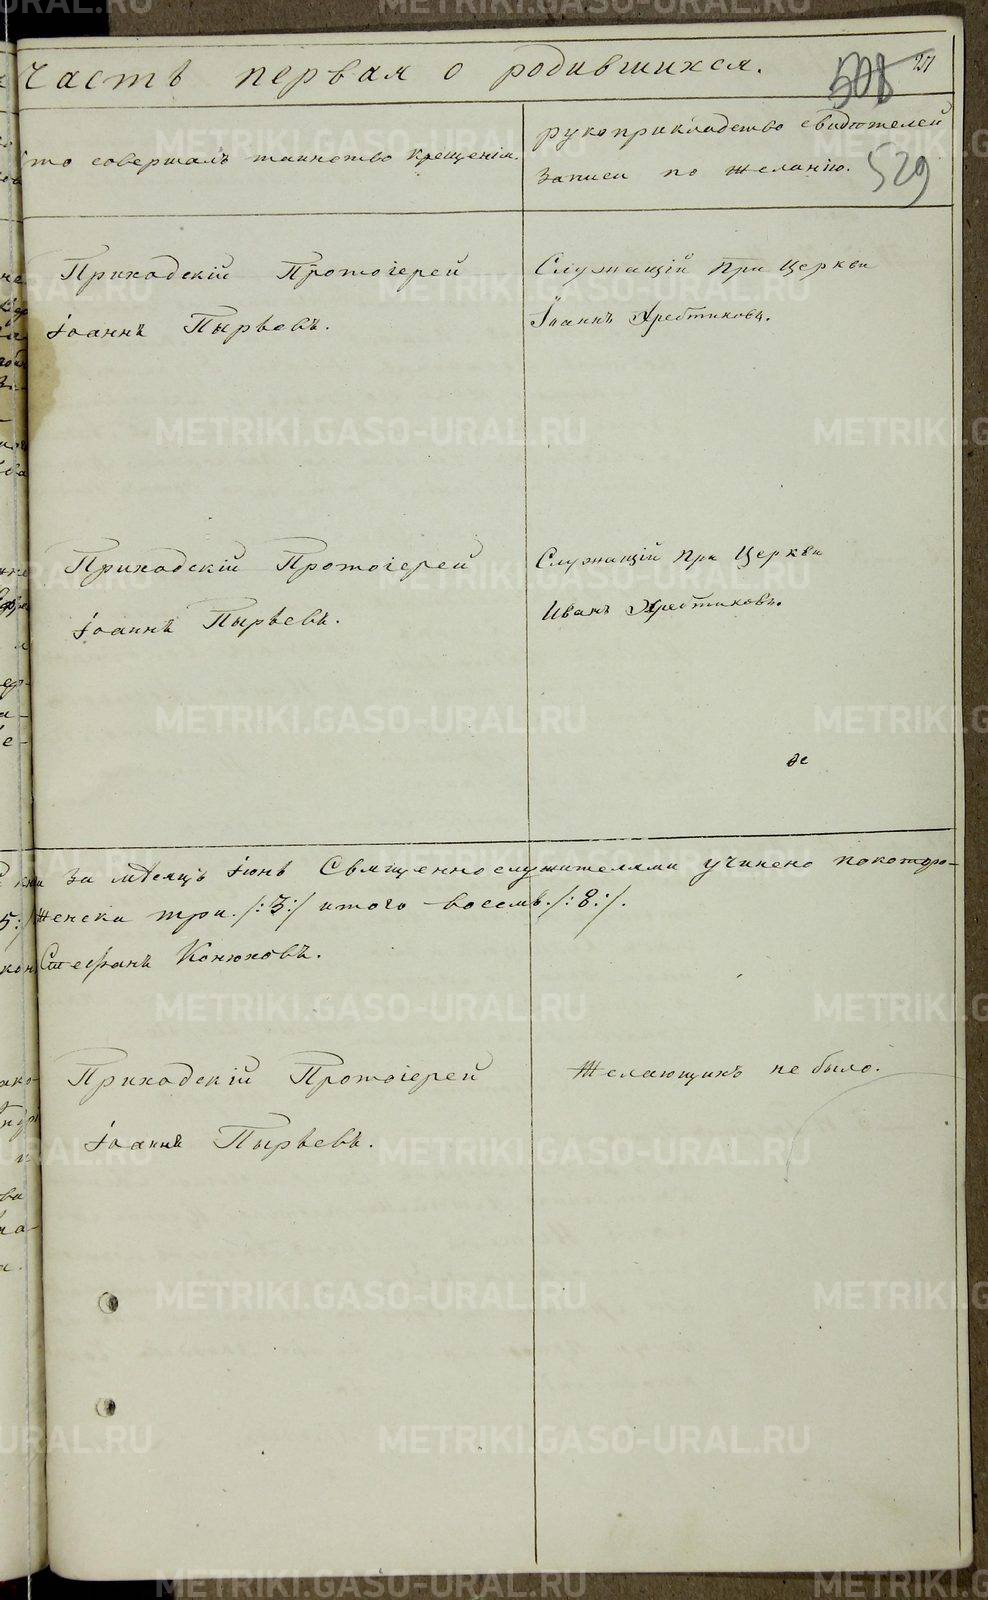 Часть первая о родившихся.
529
Кто совершалъ таинство крещенія.
рукоприкладство свидѣтелей
записи по желанію.
Приходскій Протоіерей
Іоаннъ Пырьевъ.
Служащій при Церкви
Іоаннъ Хребтиковъ.
Приходскій Протоіерей
Іоаннъ Пырьевъ.
Служащій при Церкви
Иванъ Хребтиковъ.
за мѣсяцъ Іюнь Священнослужителями учинено покоторо-
женска три /:3:/ итого восемь /:8:/.
Стефанъ Конюховъ.
Приходскій Протоіерей
Іоаннъ Пырьевъ.
Желающихъ не было.
METRIKI.GASO-URAL.RU